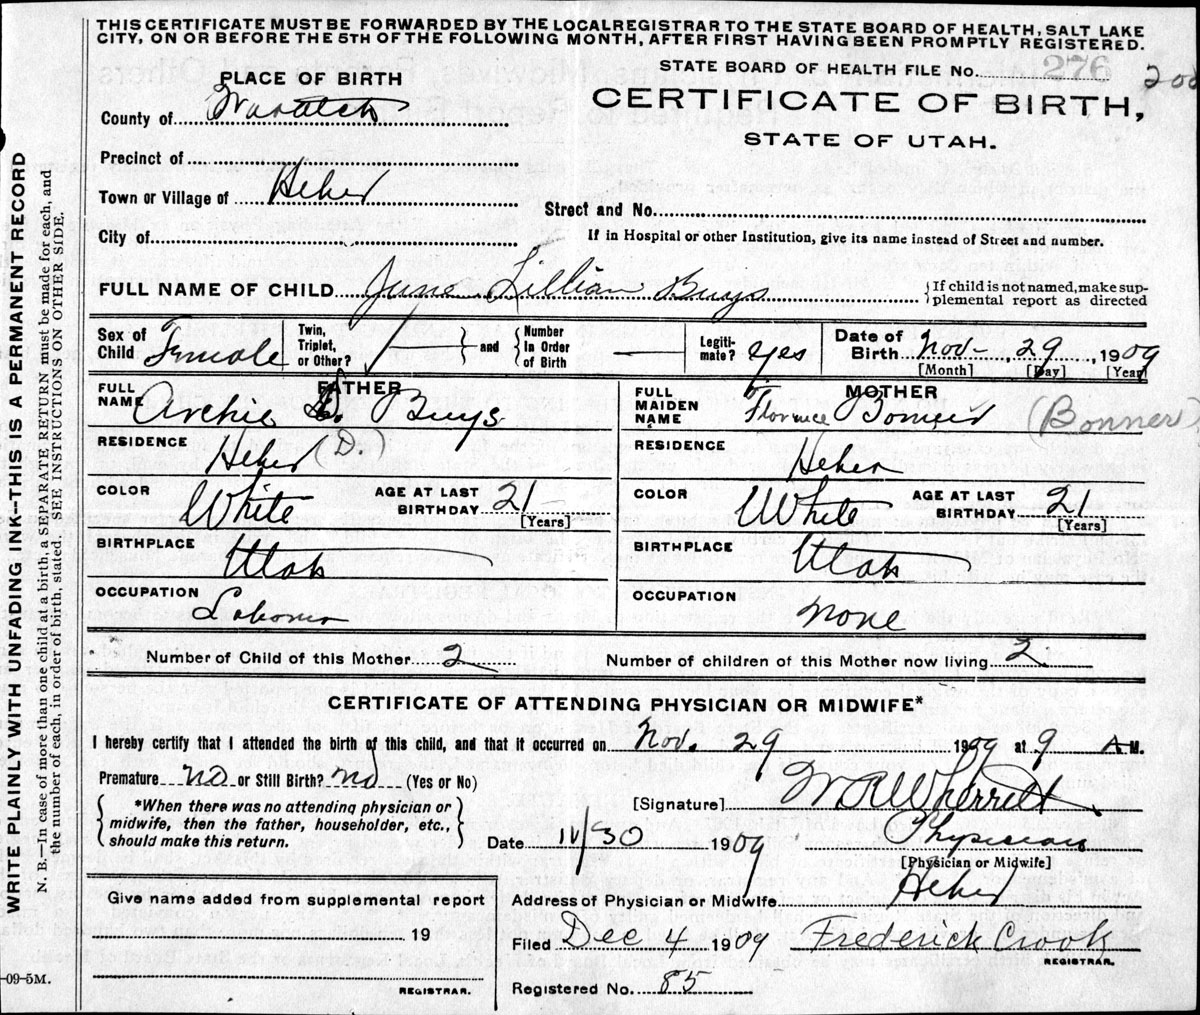 THIS CERTIFICATE MUST BE FORWARDED BY THE LOCAL REGISTRAR TO THE STATE BOARD OF HEALTH, SALT LAKE
CITY, ON OR BEFORE THE 5TH OF THE FOLLOWING MONTH, AFTER FIRST HAVING BEEN PROMPTLY REGISTERED.
STATE BOARD OF HEALTH FILE No. 276
CERTIFICATE OF BIRTH,
STATE OF UTAH.
PLACE OF BIRTH
County of Wasatch
Precinct of
Town or Village of Heber
Street and No.
City of
If in Hospital or other Institution, give its name instead of Street and number.
FULL NAME OF CHILD June Lillian Buys
If child is not named, make sup-
plemental report as directed
Sex of Child Female
Twin, Triplet, or Other? and Number In Order of Birth —
Legiti-mate? yes
Date of Birth Nov- 29, 1909
[Month] [Day] [Year]
FATHER
FULL NAME Archie D. Buys
RESIDENCE Heber (D.
COLOR White
AGE AT LAST BIRTHDAY 21
[Years]
BIRTHPLACE Utah
OCCUPATION Laborer
MOTHER
FULL MAIDEN NAME Florence (Bonner)
RESIDENCE Heber
COLOR White
AGE AT LAST BIRTHDAY 21
[Years]
BIRTHPLACE Utah
OCCUPATION None
Number of Child of this Mother 2
Number of children of this Mother now living 2
CERTIFICATE OF ATTENDING PHYSICIAN OR MIDWIFE*
I hereby certify that I attended the birth of this child, and that it occurred on Nov. 29 1909 at 9 A M.
Premature no or Still Birth? no (Yes or No)
*When there was no attending physician or
midwife, then the father, householder, etc.,
should make this return.
[Signature] W R Wherritt
Date 11/30 1909
Physician
[Physician or Midwife]
Address of Physician or Midwife Heber
Give name added from supplemental report
19
REGISTRAR.
Filed Dec 4 1909 Frederick Crook
REGISTRAR.
Registered No. 85
WRITE PLAINLY WITH UNFADING INK--THIS IS A PERMANENT RECORD
N. B.—In case of more than one child at a birth, a SEPARATE RETURN must be made for each, and
the number of each, in order of birth, stated. SEE INSTRUCTIONS ON OTHER SIDE.
-09-5M.